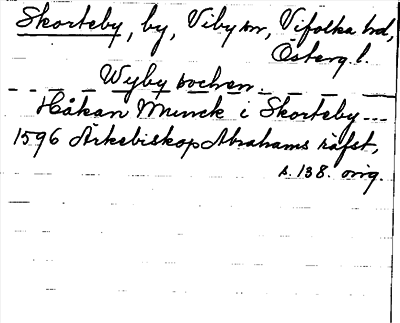 Skorteby, by, Viby sn, Vifolka hd,
Österg. l.
Wyby sochen.
Håkan Munck i Skorteby ---
1596 Ärkebiskop Abrahams räfst,
s. 138. orig.